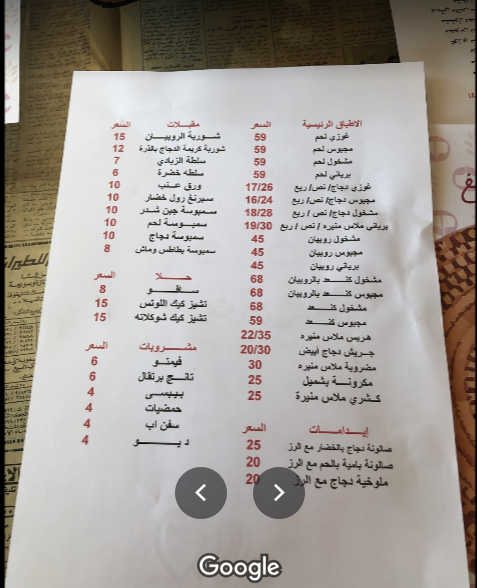 الاطباق الرئيسية السعر
غوزي لحم 59
مجبوس لحم 59
مشخول لحم 59
برياني لحم 59
غوزي دجاج/ نص/ ربع 17/26
مجبوس دجاج/ نص/ ربع 16/24
مشخول دجاج/ نص/ ربع 18/28
برياني ملاس منيره / نص/ ربع 19/30
مشخول روبيان 45
مجبوس روبيان 45
برياني روبيان 45
مشخول كنعد بالروبيان 68
مجبوس كنعد بالروبيان 68
مشخول كنعد 68
مجبوس كنعد 59
هريس ملاس منيره 22/35
جريش دجاج أبيض 20/30
مضروبة ملاس منيره 30
مكرونة بشميل 25
كشري ملاس منيرة 25
إيدامات السعر
صالونة دجاج بالخضار مع الرز 25
صالونة بامية بالحم مع الرز 20
ملوخية دجاج مع الرز 20
مقبلات السعر
شوربة الروبيان 15
شوربة كريمة الدجاج بالذرة 12
سلطة الزبادي 7
سلطه خضرة 6
ورق عنب 10
سبرنغ رول خضار 10
سمبوسة جبن شدر 10
سمبوسة لحم 10
سمبوسة دجاج 10
سمبوسة بطاطس وماش 8
حلا السعر
ساقو 8
تشيز كيك اللوتس 15
تشيز كيك شوكلاته 15
مشروبات السعر
فيمتو 6
تانج برتقال 6
بيبسي 4
حمضيات 4
سفن اب 4
ديو 4
Google